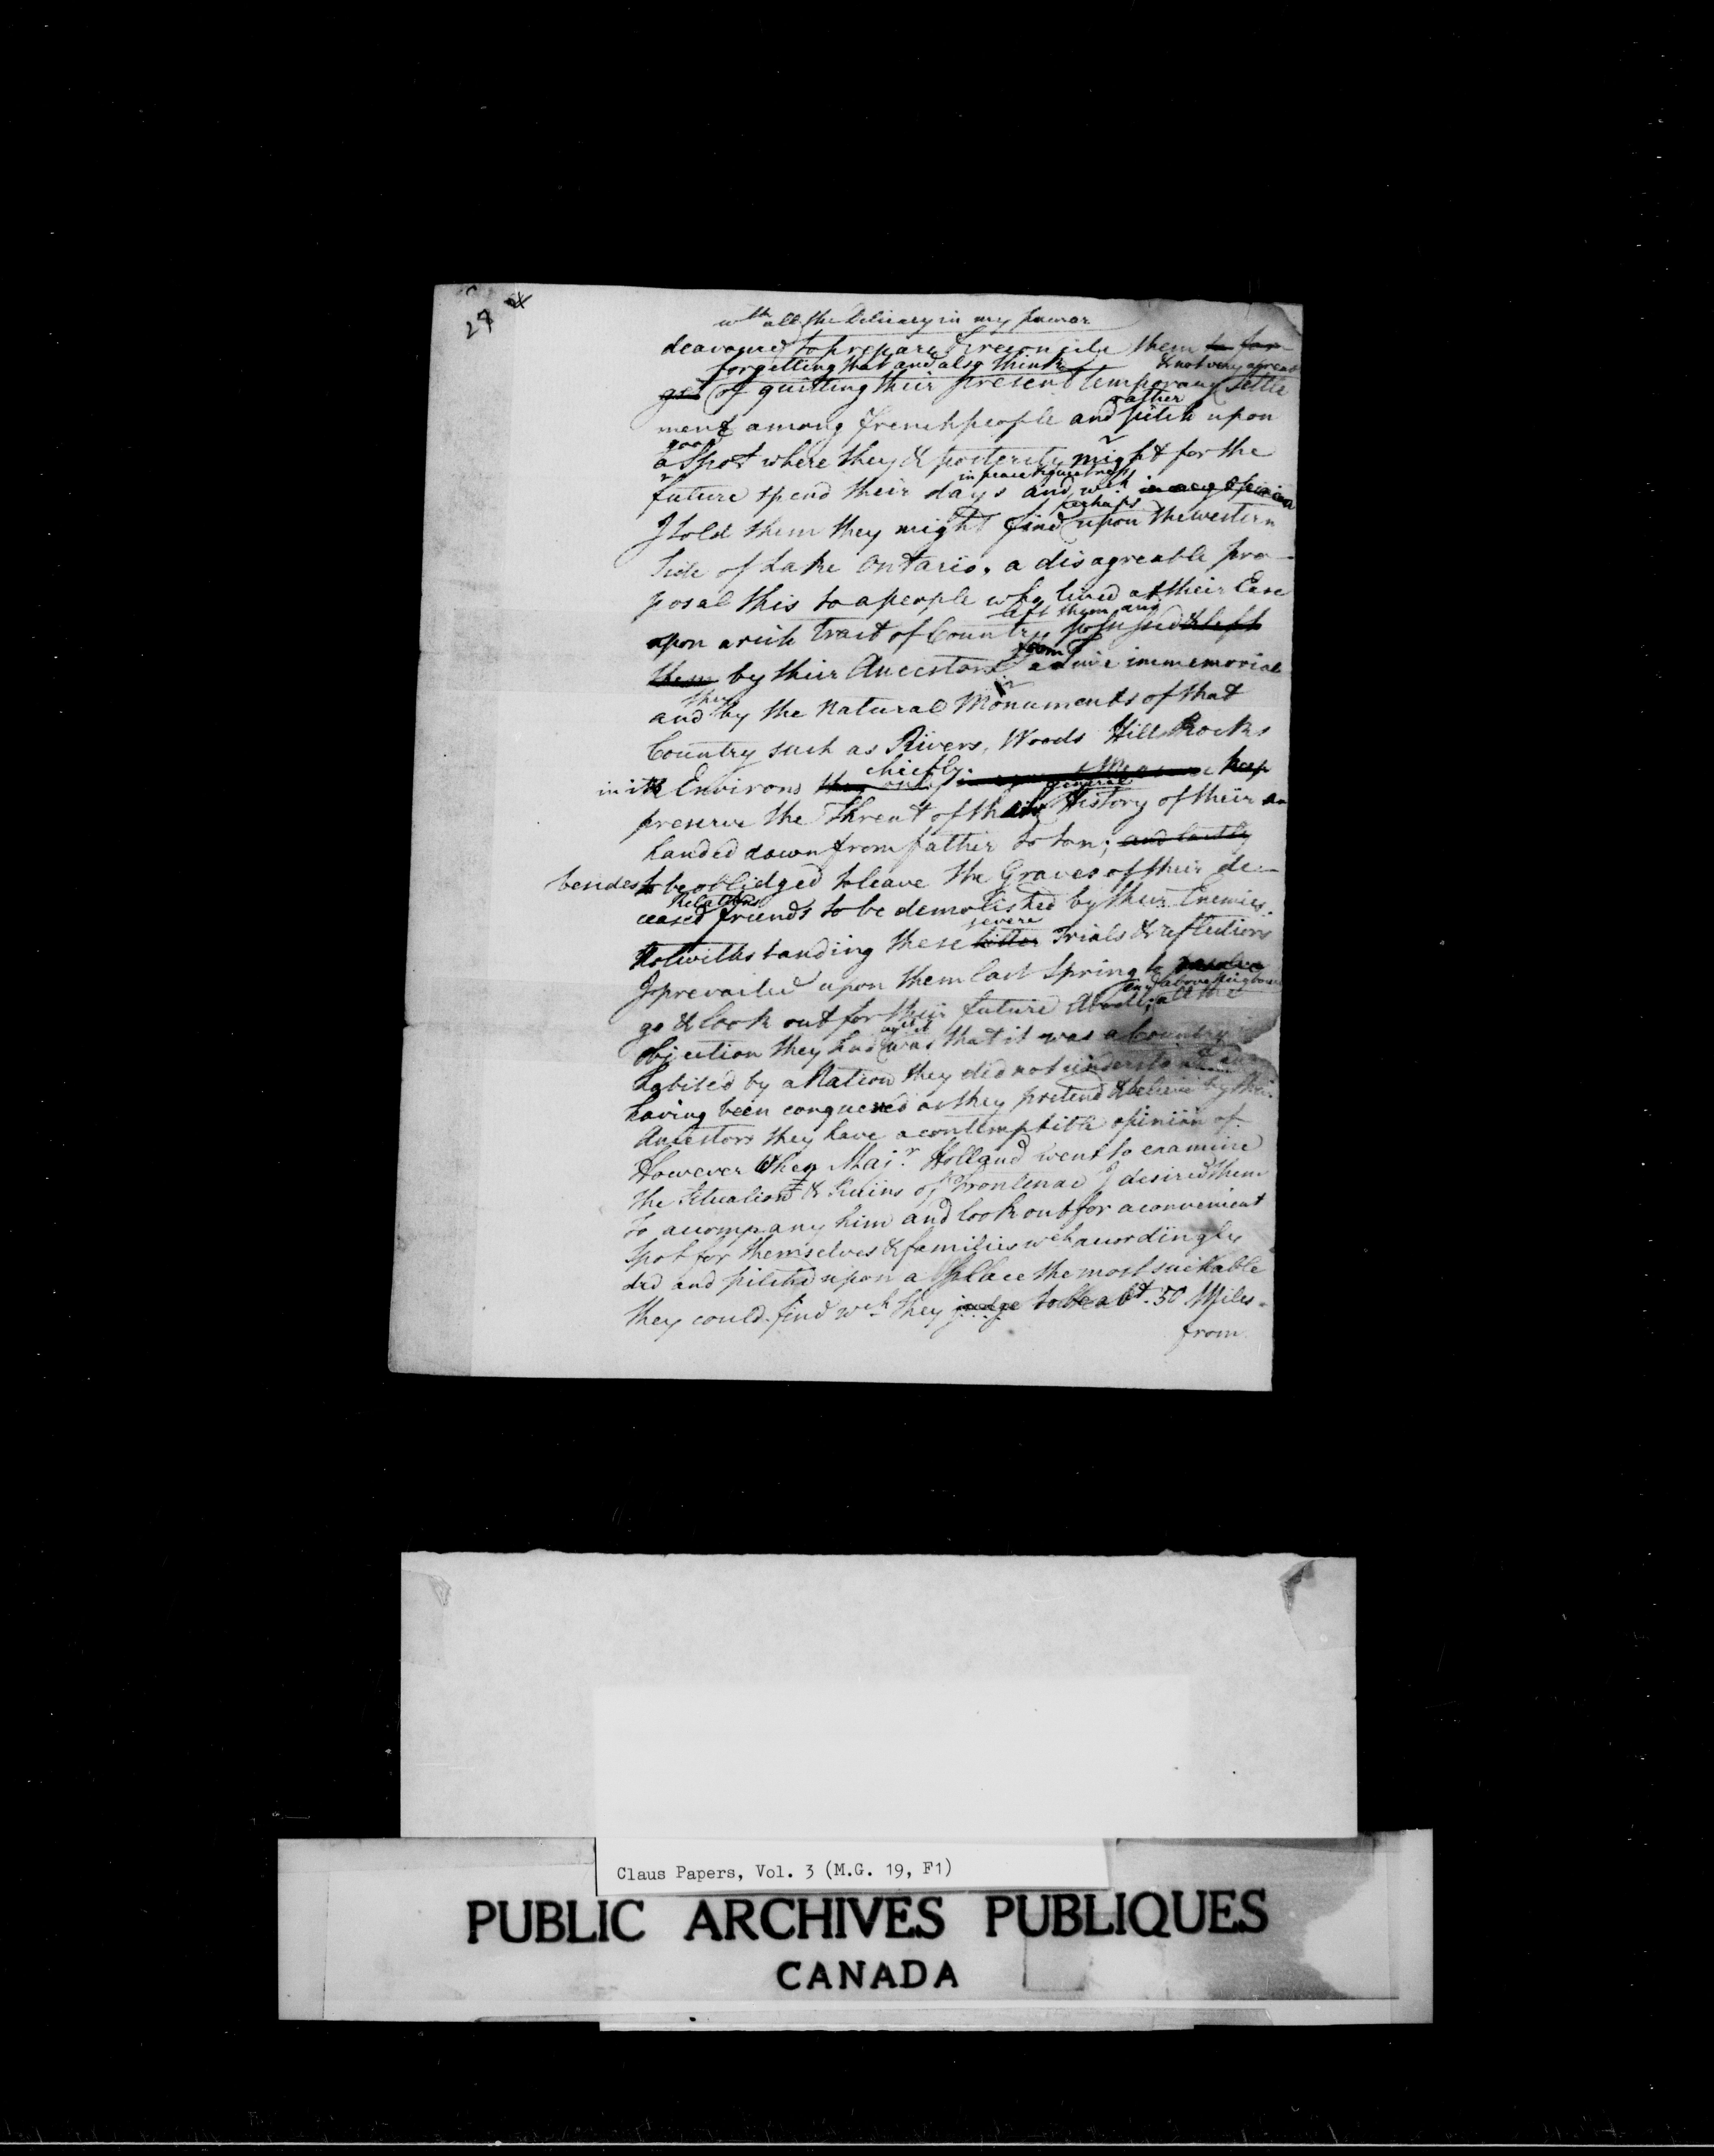 27
wth all the Delicacy in my power
deavoured to prepare & reconcile them to for-
forgetting that and also think
& not very agreeable
get of quitting their present temporary settle
rather
ment among french people and pitch upon
good
a Spot where they & posterity might for the
in peace & quietness
future spend their days and wch in my opinion
perhaps
I told them they might find upon the western
side of Lake Ontario, a disagreable pro-
posal this to a people who lived at their Ease
left them and
upon a rich tract of Country possessed & left
from
them by their Ancestors time immemorial
they in
and by the Natural Monuments of that
Country such as Rivers, Woods Hills Rocks
chiefly
in its Environs they only keep
general
preserve the Threat of their History of their an
handed down from father to son; and lastly
besides to be oblidged to leave the Graves of their de-
Relations
ceased friends to be demolished by their Enemies.
severe
Notwithstanding these bitter Trials & reflections
I prevailed upon them last Spring to resolve
and above
go & look out for their future Abode; all the
agst it
objection they had was that it was a Country in
habited by a Nation they did not understand and
having been conquered as they pretend & believe by their
Ancestors they have a contemptible opinion of.
However when Majr. Holland went to examine
the Situation & Ruins of Frontenac I desired them
to accompany him and look out for a convenient
spot for themselves & families wch accordingly
did and pitched upon a place the most suitable
they could find wch they judge to be abt. 50 Miles
from
Claus Papers, Vol. 3 (M.G. 19, F1)
PUBLIC ARCHIVES PUBLIQUES
CANADA